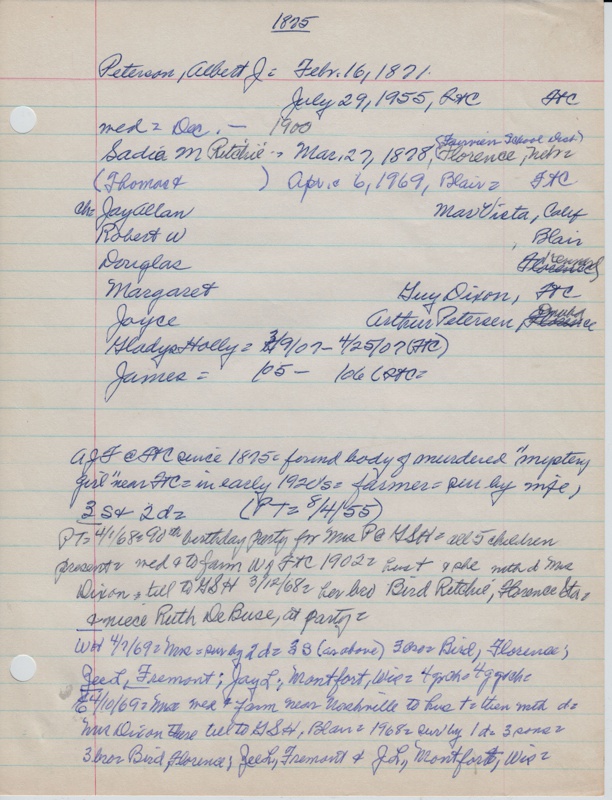 1875
Peterson, Albert J = Feb. 16, 1871.
July 29, 1955, FtC FtC
med = Dec. — 1900
(Fairview School Dist)
Sadie M Ritchie = Mar. 27, 1878, Florence, Neb =
(Thomas & ) Apr. 6, 1969, Blair = FtC
ch = Jay Allan Mar Vista, Calif
Robert W , Blair
Douglas Florence Kennard
Margaret Guy Dixon, FtC
Joyce Arthur Petersen, Florence Omaha
Gladys Holly = 3/9/07 – 4/25/07 (FtC)
James = /05 – /06 (FtC =
AJ F & FtC since 1875 = found body of murdered "mystery
girl" near FtC = in early 1920's = farmer = sur by wife,
3 s & 2 d = (PT = 8/4/55)
PT = 4/1/68 = 90th birthday party for Mrs P @ GSH = all 5 children
present = med & to farm W of FtC 1902 = hus t & she mtd d Mrs
Dixon, till to GSH 3/12/68 = her bro Bird Ritchie, Florence Sta =
& niece Ruth De Buse, at party =
WH 4/7/69 = Mrs = sur by 2 d = 3 S (as above) 3 bro = Bird, Florence;
Zeed, Fremont; Jay L; Montfort, Wis = 4 grch = 4 g grch =
E 4/10/69 = Mrs med & farm near Nashville to hus t = then mtd d =
Mrs Dixon there till to GSH, Blair = 1968 = sur by 2 d = 3 sons =
3 bro = Bird, Florence; Zeed, Fremont & J.L., Montfort, Wis =